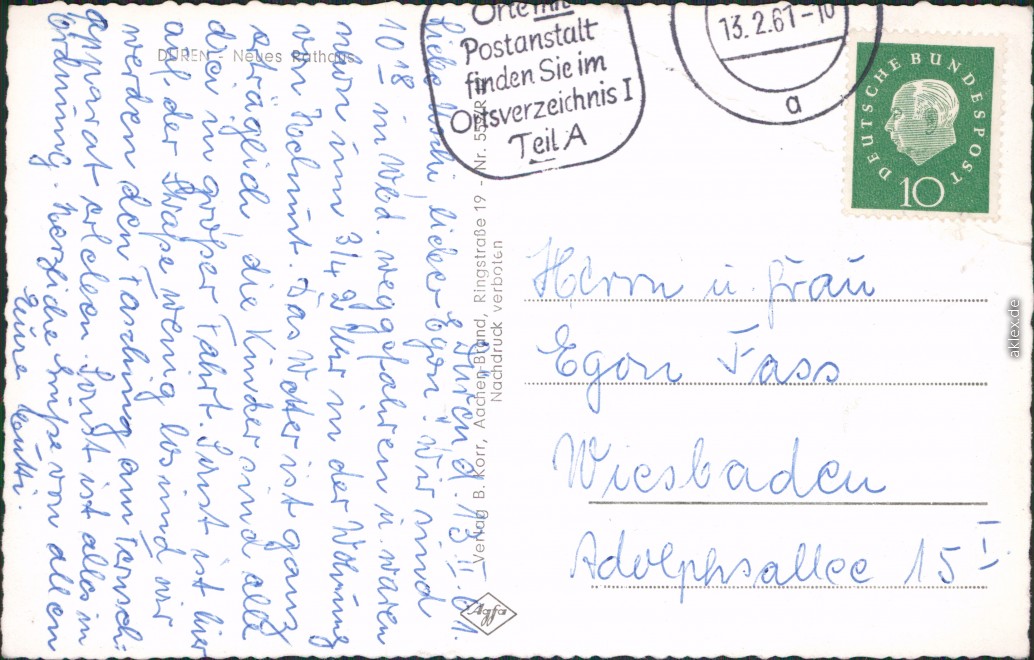 DÜREN - Neues Rathaus
Düren d. 13. II. 61.
Liebe Uschi, lieber Egon! Wir sind
10 18 in Wbd. weggefahren u. waren
nun um 3/4 2 Uhr in der Wohnung
von Helmut. Das Wetter ist ganz
erträglich, die Kinder sind alle
drei in großer Fahrt. Sonst ist hier
auf der Straße wenig los und wir
werden den Fasching am Fernseh-
apparat erleben. Sonst ist alles in
Ordnung. Herzliche Grüße von allen
Eure Mutti.
Verlag B. Korr, Aachen-Brand, Ringstraße 19 - Nr.
Nachdruck verboten
Agfa
Orte mit
Postanstalt
finden Sie im
Ortsverzeichnis I
Teil A
13.2.61-10
a
DEUTSCHE BUNDESPOST
10
Herrn u. Frau
Egon Fass
Wiesbaden
Adolphsallee 15 I
aklex.de